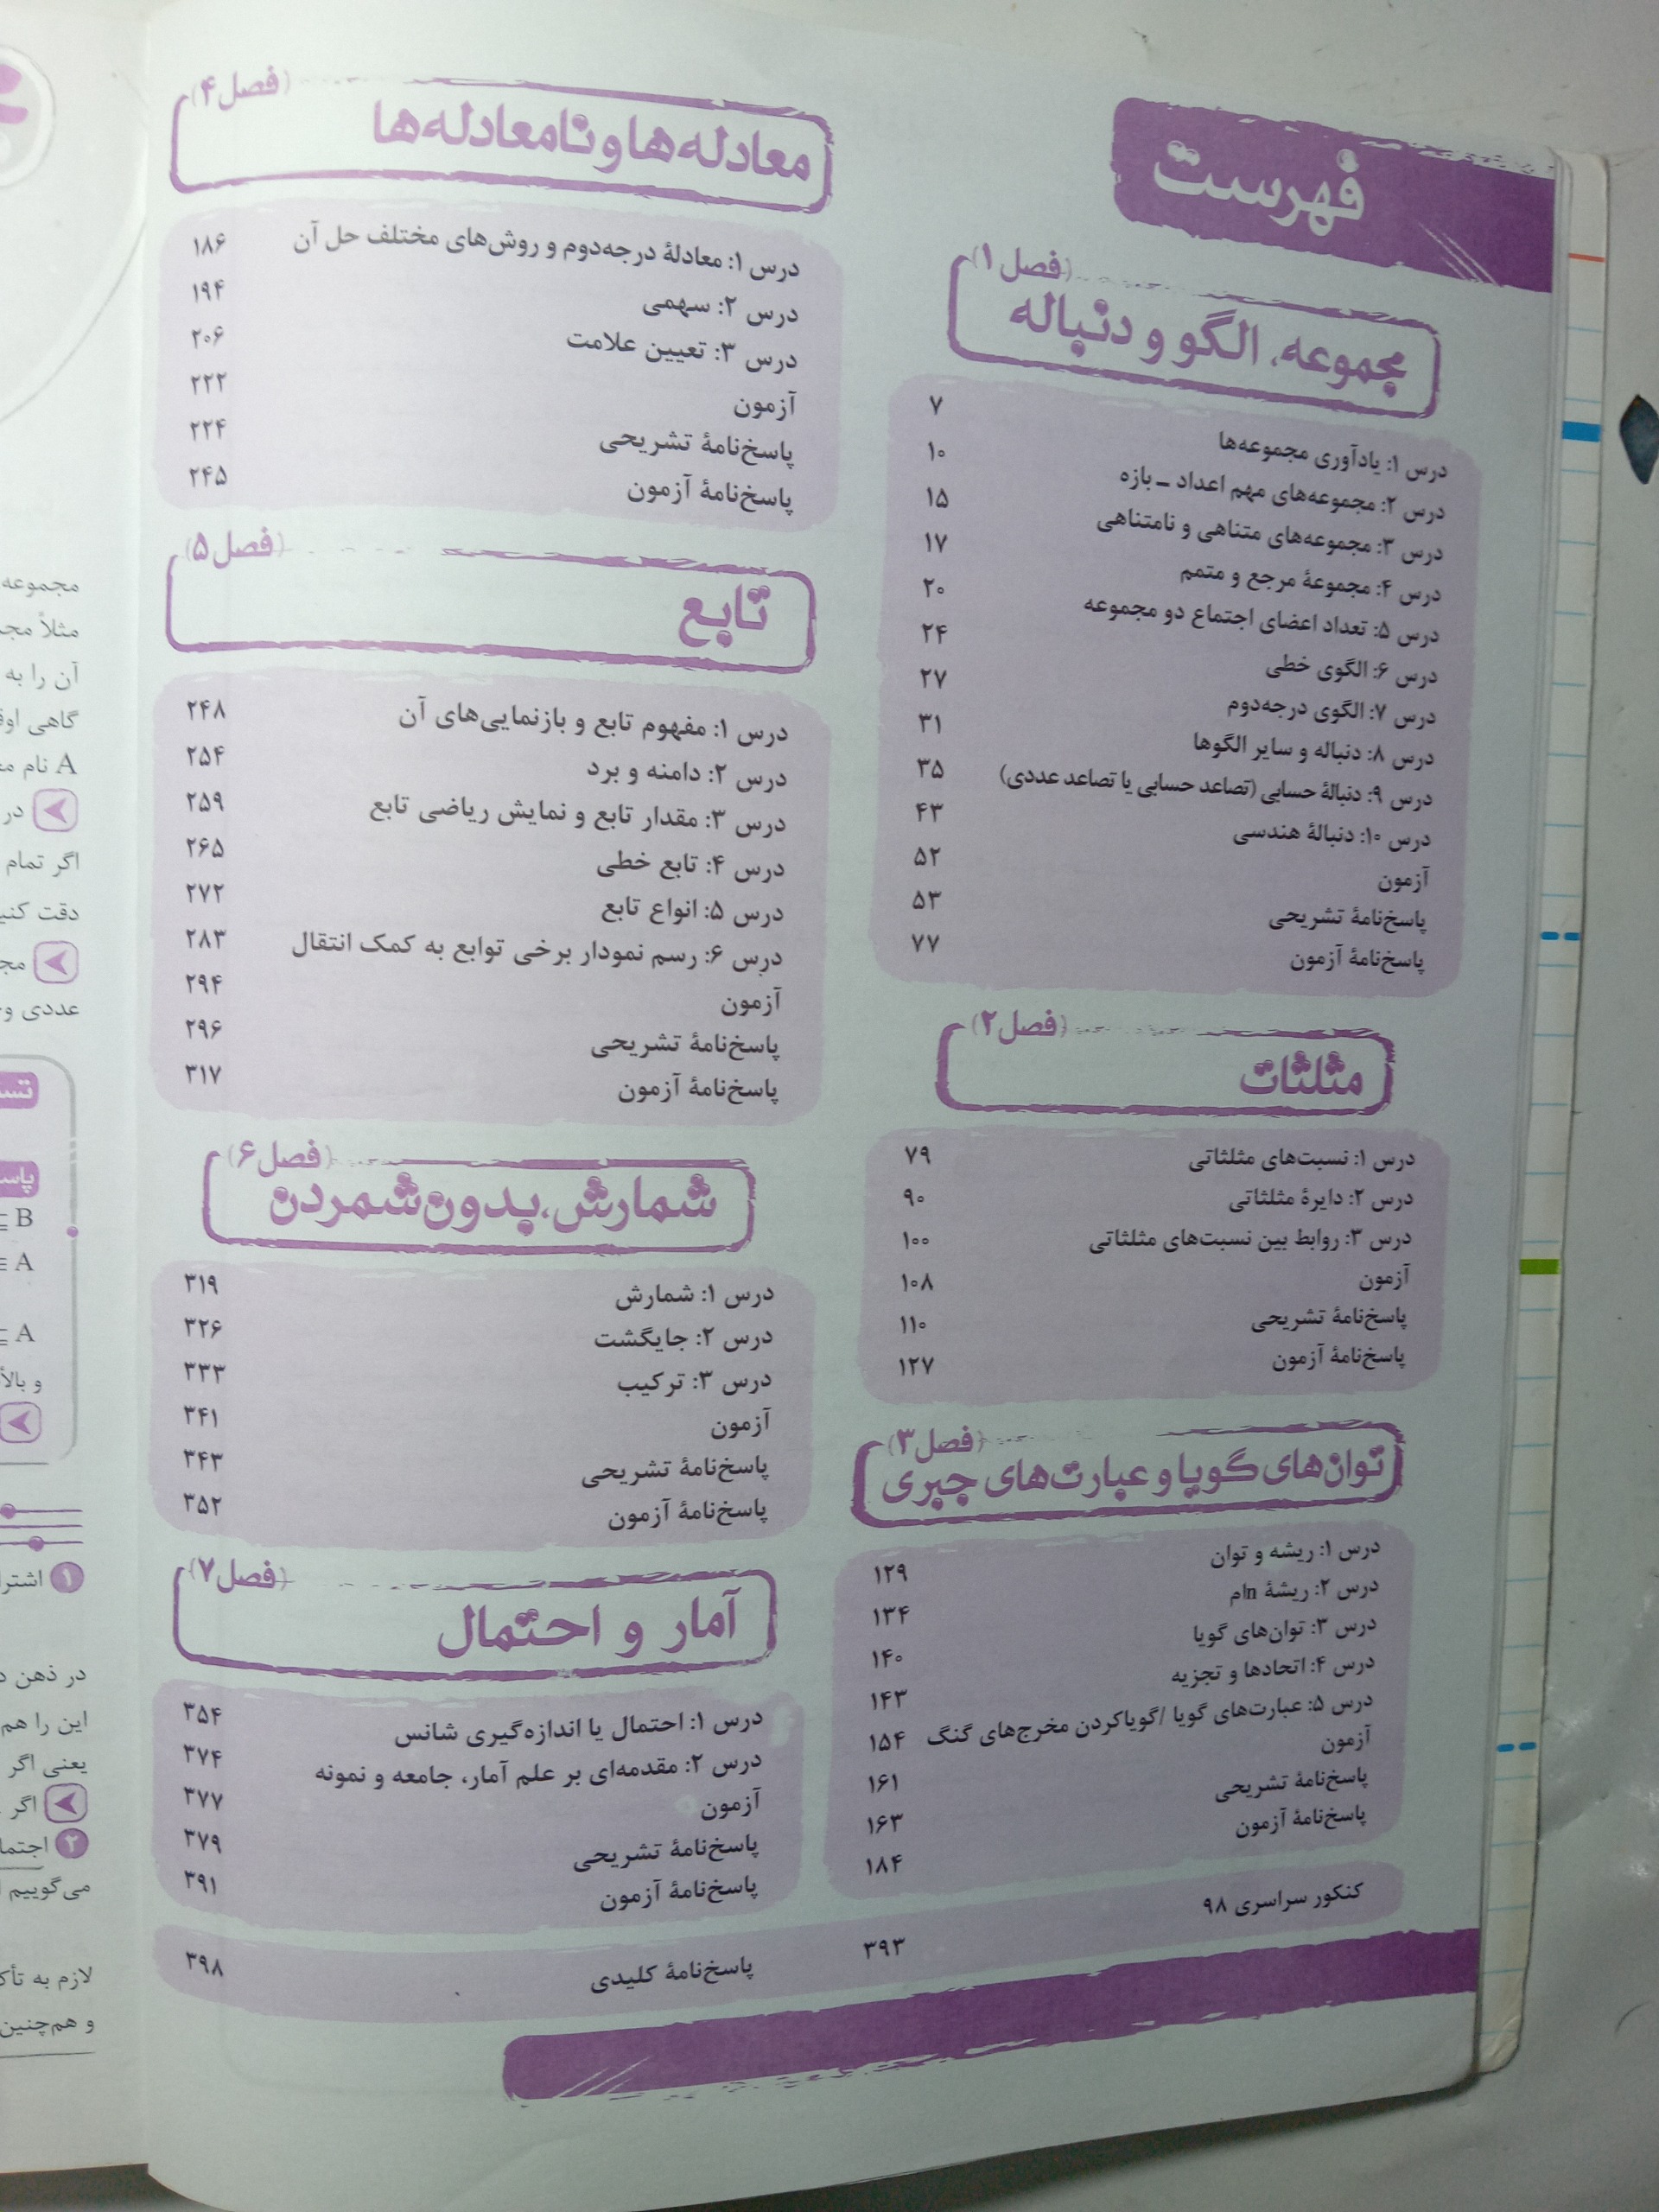 فهرست
(فصل ۱)
مجموعه، الگو و دنباله
درس ۱: یادآوری مجموعه‌ها ۷
درس ۲: مجموعه‌های مهم اعداد ـ بازه ۱۰
درس ۳: مجموعه‌های متناهی و نامتناهی ۱۵
درس ۴: مجموعهٔ مرجع و متمم ۱۷
درس ۵: تعداد اعضای اجتماع دو مجموعه ۲۰
درس ۶: الگوی خطی ۲۴
درس ۷: الگوی درجه‌دوم ۲۷
درس ۸: دنباله و سایر الگوها ۳۱
درس ۹: دنبالهٔ حسابی (تصاعد حسابی یا تصاعد عددی) ۳۵
درس ۱۰: دنبالهٔ هندسی ۴۳
آزمون ۵۲
پاسخ‌نامهٔ تشریحی ۵۳
پاسخ‌نامهٔ آزمون ۷۷
(فصل ۲)
مثلثات
درس ۱: نسبت‌های مثلثاتی ۷۹
درس ۲: دایرهٔ مثلثاتی ۹۰
درس ۳: روابط بین نسبت‌های مثلثاتی ۱۰۰
آزمون ۱۰۸
پاسخ‌نامهٔ تشریحی ۱۱۰
پاسخ‌نامهٔ آزمون ۱۲۷
(فصل ۳)
توان‌های گویا و عبارت‌های جبری
درس ۱: ریشه و توان ۱۲۹
درس ۲: ریشهٔ nام ۱۳۴
درس ۳: توان‌های گویا ۱۴۰
درس ۴: اتحادها و تجزیه ۱۴۳
درس ۵: عبارت‌های گویا /گویاکردن مخرج‌های گنگ ۱۵۴
آزمون ۱۶۱
پاسخ‌نامهٔ تشریحی ۱۶۳
پاسخ‌نامهٔ آزمون ۱۸۴
کنکور سراسری ۹۸ ۳۹۳
(فصل ۴)
معادله‌ها و نامعادله‌ها
درس ۱: معادلهٔ درجه‌دوم و روش‌های مختلف حل آن ۱۸۶
درس ۲: سهمی ۱۹۴
درس ۳: تعیین علامت ۲۰۶
آزمون ۲۲۲
پاسخ‌نامهٔ تشریحی ۲۲۴
پاسخ‌نامهٔ آزمون ۲۴۵
(فصل ۵)
تابع
درس ۱: مفهوم تابع و بازنمایی‌های آن ۲۴۸
درس ۲: دامنه و برد ۲۵۴
درس ۳: مقدار تابع و نمایش ریاضی تابع ۲۵۹
درس ۴: تابع خطی ۲۶۵
درس ۵: انواع تابع ۲۷۲
درس ۶: رسم نمودار برخی توابع به کمک انتقال ۲۸۳
آزمون ۲۹۴
پاسخ‌نامهٔ تشریحی ۲۹۶
پاسخ‌نامهٔ آزمون ۳۱۷
(فصل ۶)
شمارش، بدون شمردن
درس ۱: شمارش ۳۱۹
درس ۲: جایگشت ۳۲۶
درس ۳: ترکیب ۳۳۳
آزمون ۳۴۱
پاسخ‌نامهٔ تشریحی ۳۴۳
پاسخ‌نامهٔ آزمون ۳۵۲
(فصل ۷)
آمار و احتمال
درس ۱: احتمال یا اندازه‌گیری شانس ۳۵۴
درس ۲: مقدمه‌ای بر علم آمار، جامعه و نمونه ۳۷۴
آزمون ۳۷۷
پاسخ‌نامهٔ تشریحی ۳۷۹
پاسخ‌نامهٔ آزمون ۳۹۱
پاسخ‌نامهٔ کلیدی ۳۹۸
مجموعه
مثلاً
آن را به
گاهی
A نام
در
اگر تمام
دقت
عددی
B
A
A
و
۱
در ذهن
این را هم
یعنی اگر
اگر
۲
می‌گوییم
لازم به
و هم‌چنین